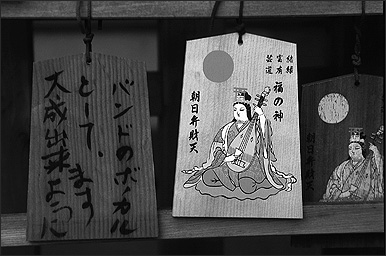 バンドのボーカル
として、ます
大成出来ように
結縁
富有
芸道
福の神
朝日弁財天
朝日弁財天